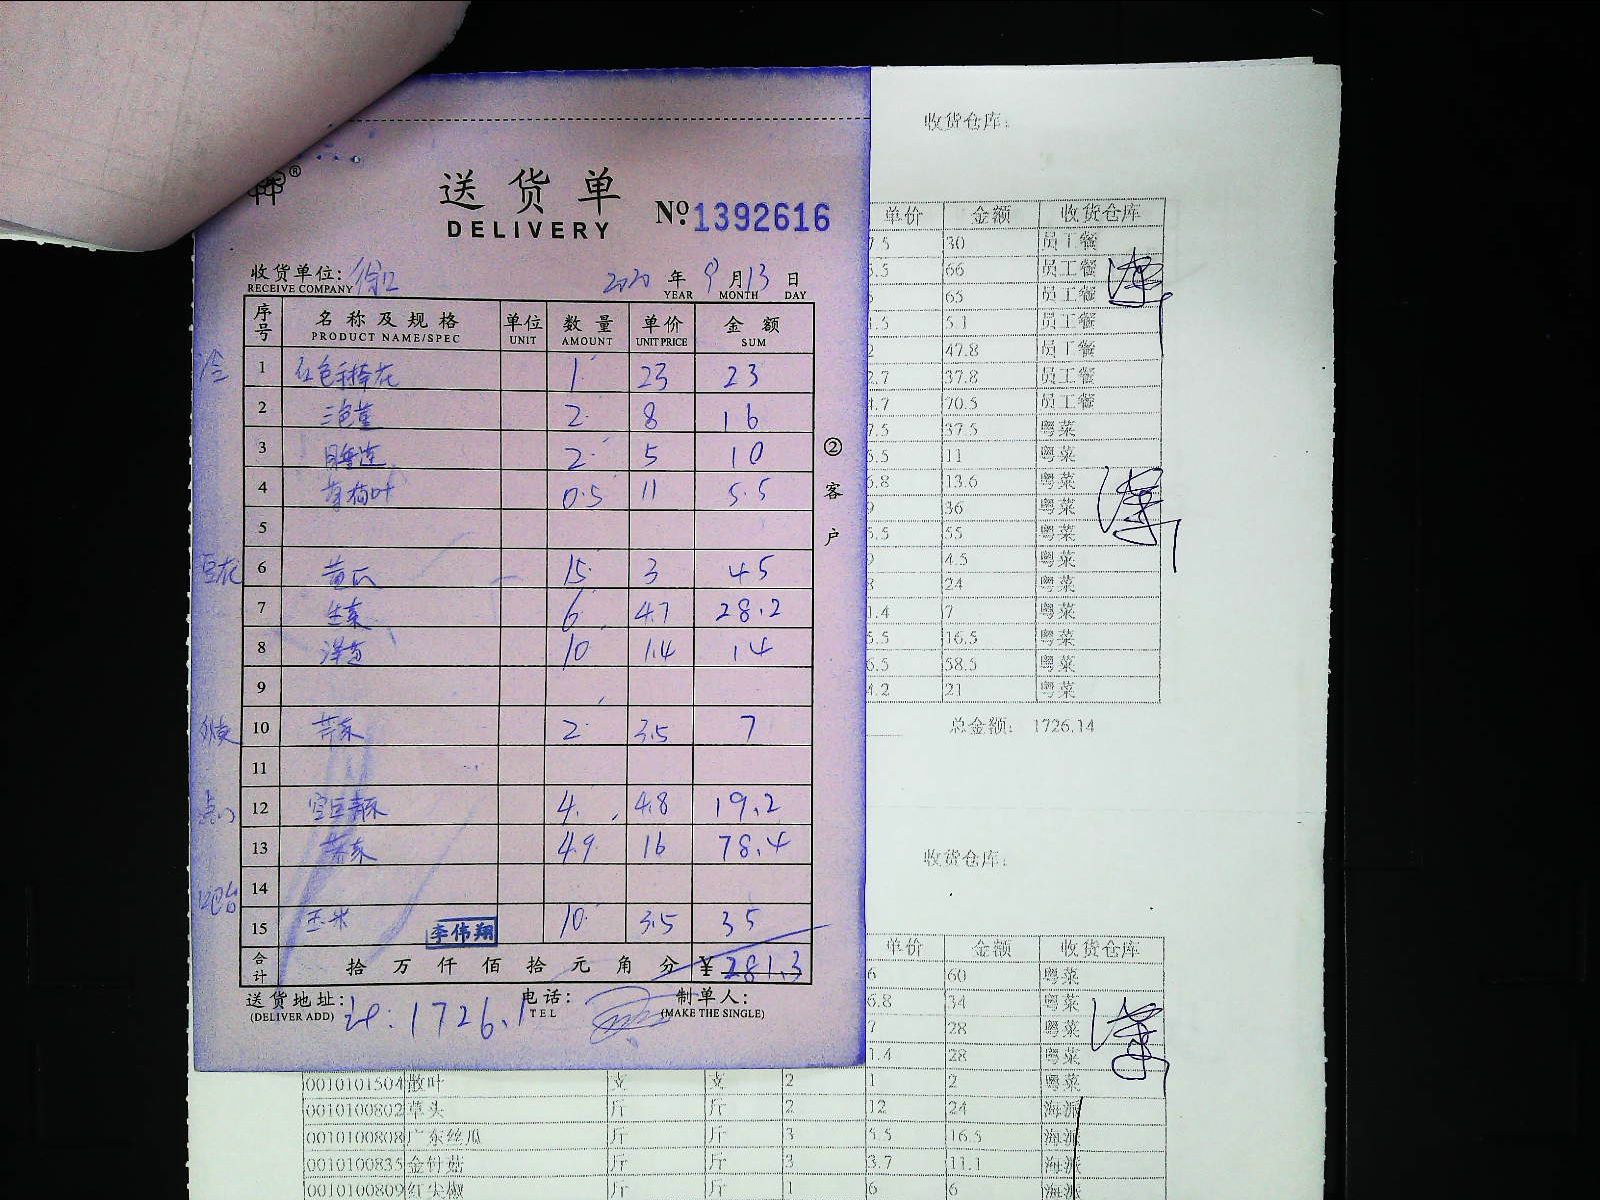 送货单
DELIVERY
№ 1392616
收货单位:
RECEIVE COMPANY
2020 年 9 月 13 日
YEAR MONTH DAY
序号 名称及规格 单位 数量 单价 金额
PRODUCT NAME/SPEC UNIT AMOUNT UNIT PRICE SUM
冷 1 红色手捧花 1 23 23
2 三色堇 2 8 16
3 2 5 10
4 0.5 11 5.5
5
豆花 6 黄瓜 15 3 45
7 生菜 6 4.7 28.2
8 洋葱 10 1.4 14
9
10 芹菜 2 3.5 7
11
12 4 4.8 19.2
13 4.9 16 78.4
14
吧台 15 玉米 10 3.5 35
李伟翔
合计 拾万仟佰拾元角分 ¥ 281.3
送货地址: 电话: 制单人:
(DELIVER ADD) TEL (MAKE THE SINGLE)
计:1726.1
②客户
收货仓库:
单价 金额 收货仓库
7.5 30 员工餐
5.5 66 员工餐
65 员工餐
5.1 员工餐
2 47.8 员工餐
2.7 37.8 员工餐
4.7 70.5 员工餐
7.5 37.5 粤菜
5.5 11 粤菜
6.8 13.6 粤菜
9 36 粤菜
5.5 55 粤菜
4.5 粤菜
8 24 粤菜
1.4 7 粤菜
5.5 16.5 粤菜
6.5 58.5 粤菜
4.2 21 粤菜
总金额: 1726.14
收货仓库:
单价 金额 收货仓库
6 60 粤菜
6.8 34 粤菜
7 28 粤菜
1.4 28 粤菜
0010101504 散叶 支 支 2 1 2 粤菜
0010100802 草头 斤 斤 2 12 24 海派
0010100808 广东丝瓜 斤 斤 3 5.5 16.5 海派
0010100835 金针菇 斤 斤 3 3.7 11.1 海派
0010100809 红尖椒 斤 斤 1 6 6 海派